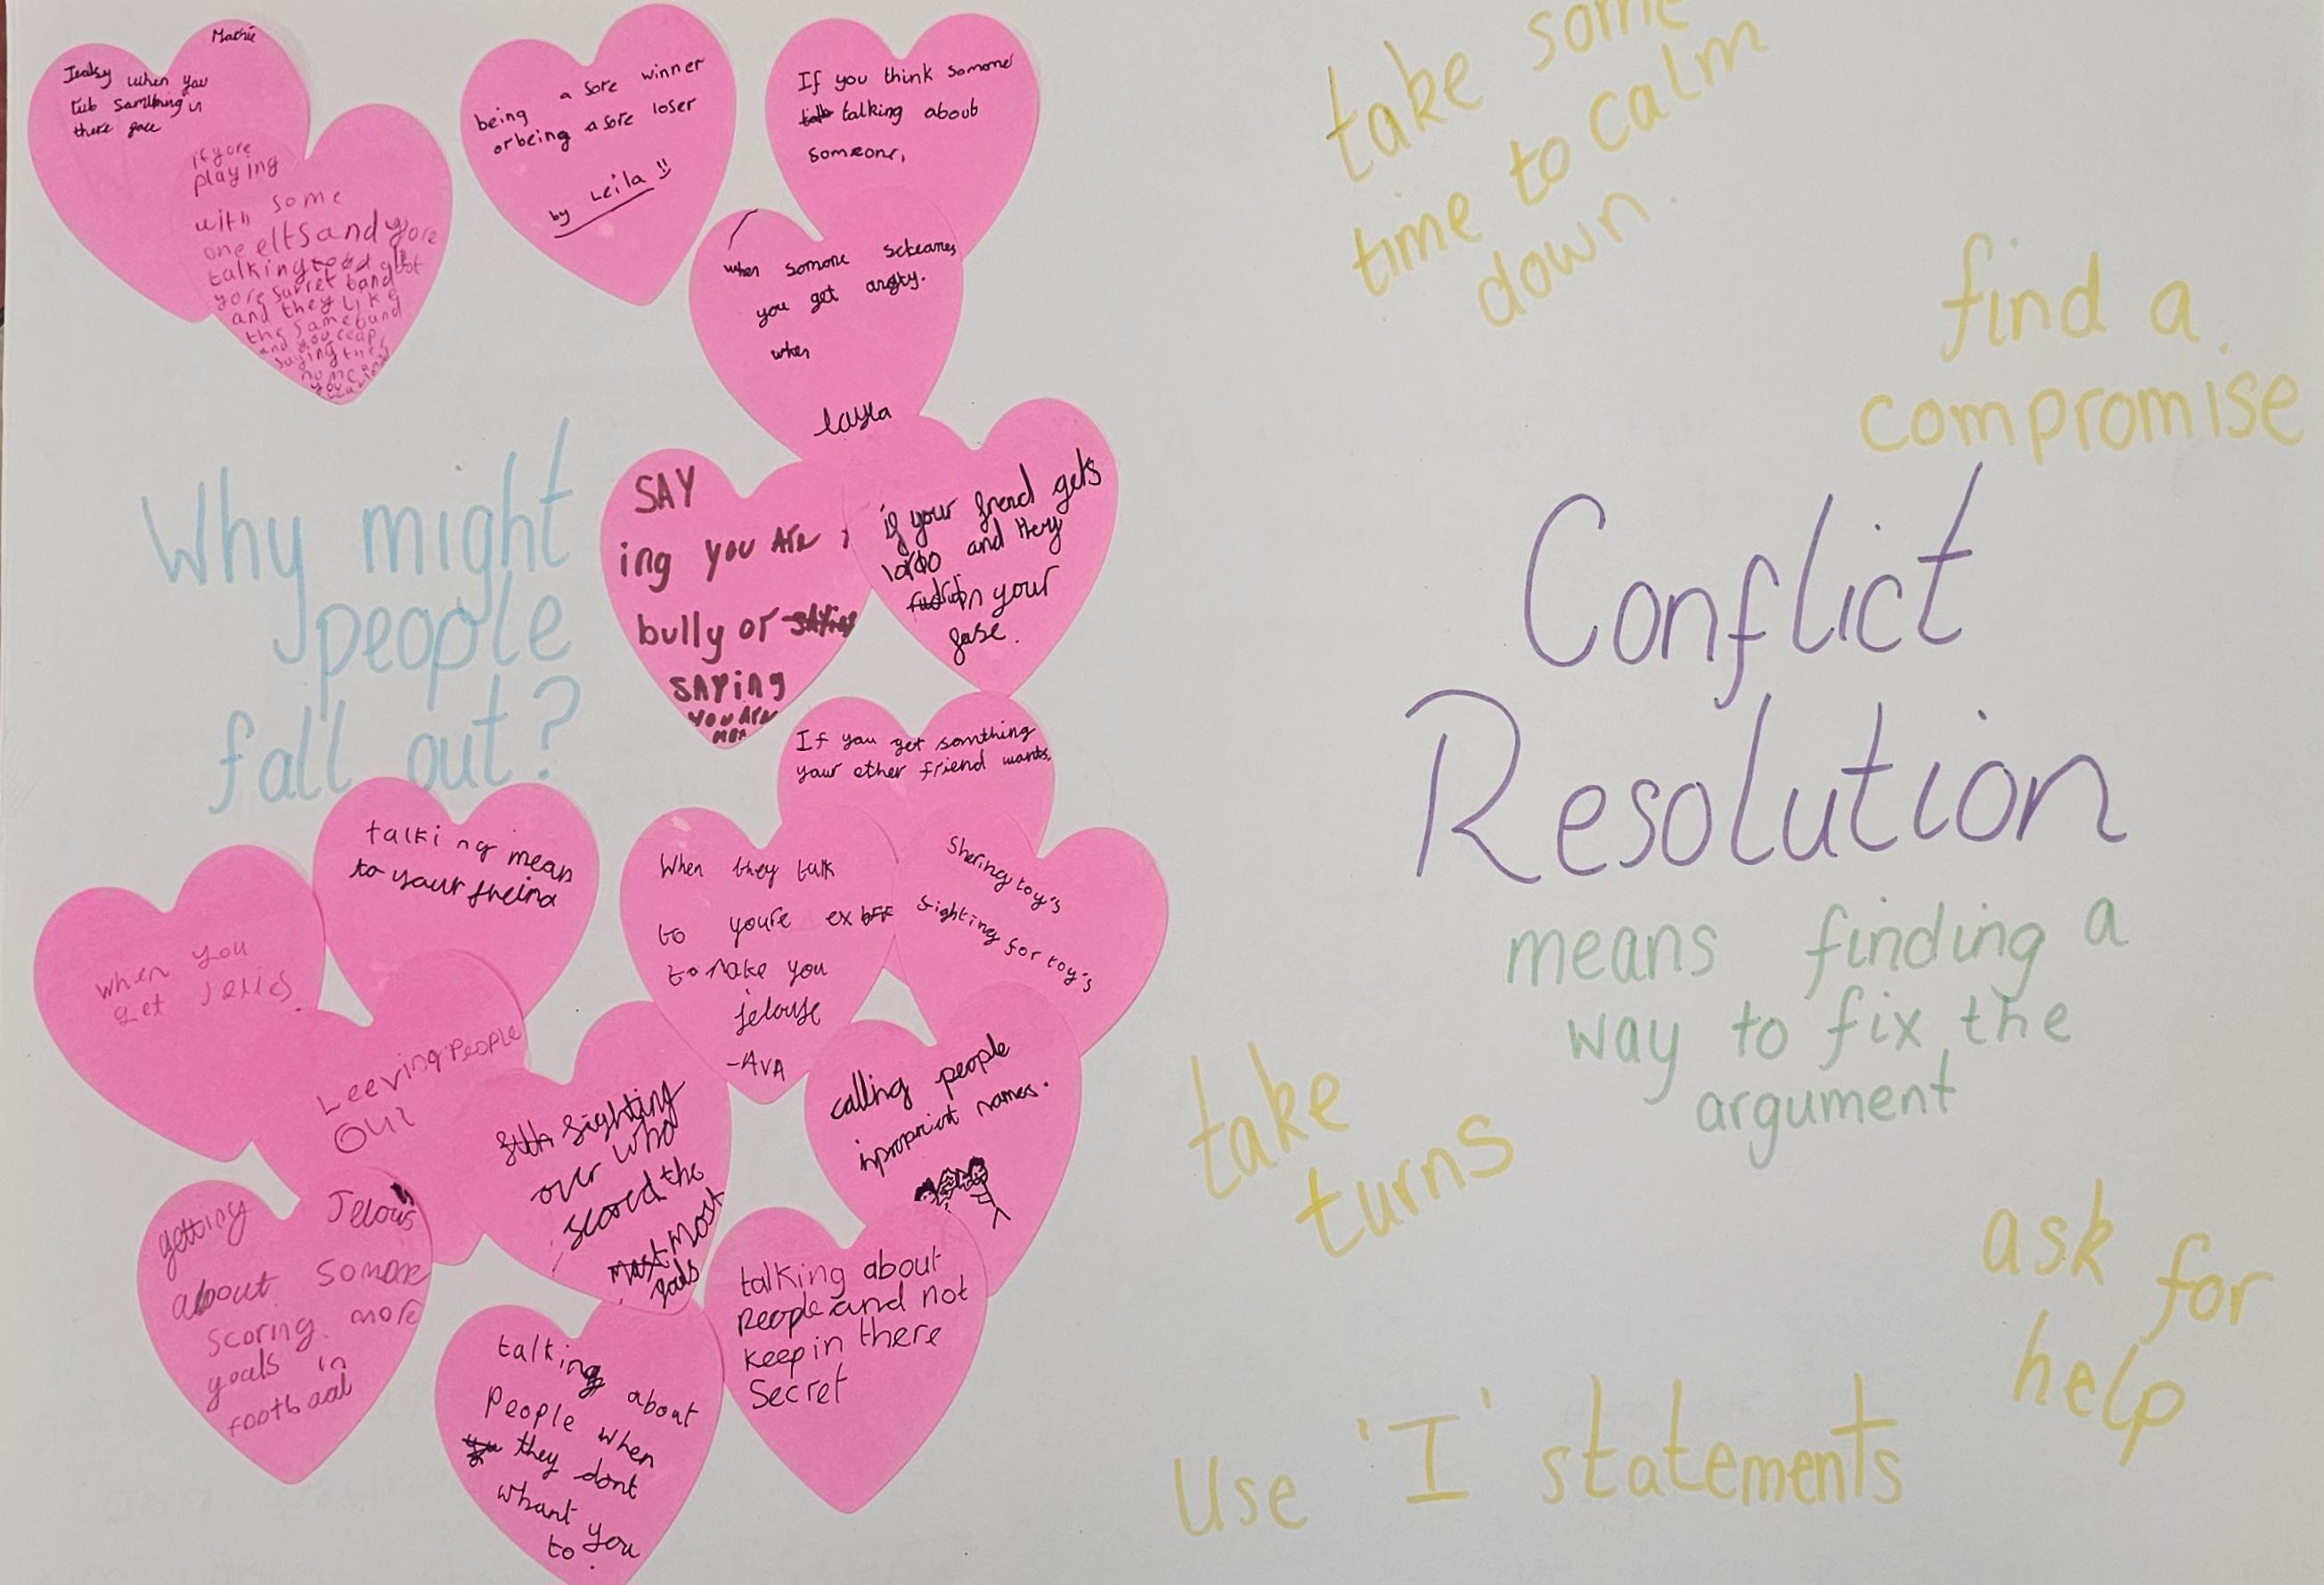 Mathie
when you
rub something in
there face
if yore
playing
with some
one elts and yore
talking about
and they like
the same band
being a sore winner
or being a sore loser
by Leila
If you think somone
talking about
someone,
when somone screames
you get angry.
when
layla
Why might
people
fall out?
SAY
ing you are
bully or
saying
you are
if your friend gets
and they
in your
fase.
If you get somthing
your other friend wants.
talking mean
to your freind
When they talk
to youre ex bff
to make you
jelouse
-AVA
Shering toy's
fighting for toy's
when you
get Jelies.
Leeving People
Out
fighting
over who
scored the
most
goals
calling people
inpropriot names.
getting Jelous
about somone
scoring more
goals in
footbaal
talking about
People when
they dont
whant you
to.
talking about
People and not
keep in there
Secret
take some
time to calm
down.
find a
compromise
Conflict
Resolution
means finding a
way to fix the
argument
take
turns
ask for
help
Use 'I' statements